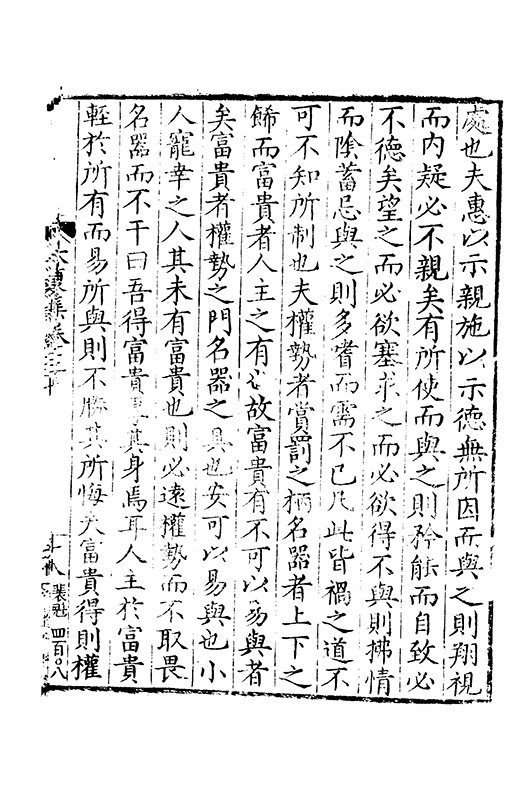 處也夫惠以示親施以示德無所因而與之則翔視
而内疑必不親矣有所使而與之則矜能而自致必
不德矣望之而必欲塞求之而必欲得不與則拂情
而陰蓄忌與之則多嗜而需不已凡此皆禍之道不
可不知所制也夫權勢者賞罰之柄名器者上下之
餙而富貴者人主之有也故富貴有不可以易與者
矣富貴者權勢之門名器之具也安可以易與也小
人寵幸之人其未有富貴也則必遠權勢而不取畏
名器而不干曰吾得富貴其身焉耳人主於富貴
輕於所有而易所與則不勝其所悔夫富貴得則權
四百〇八